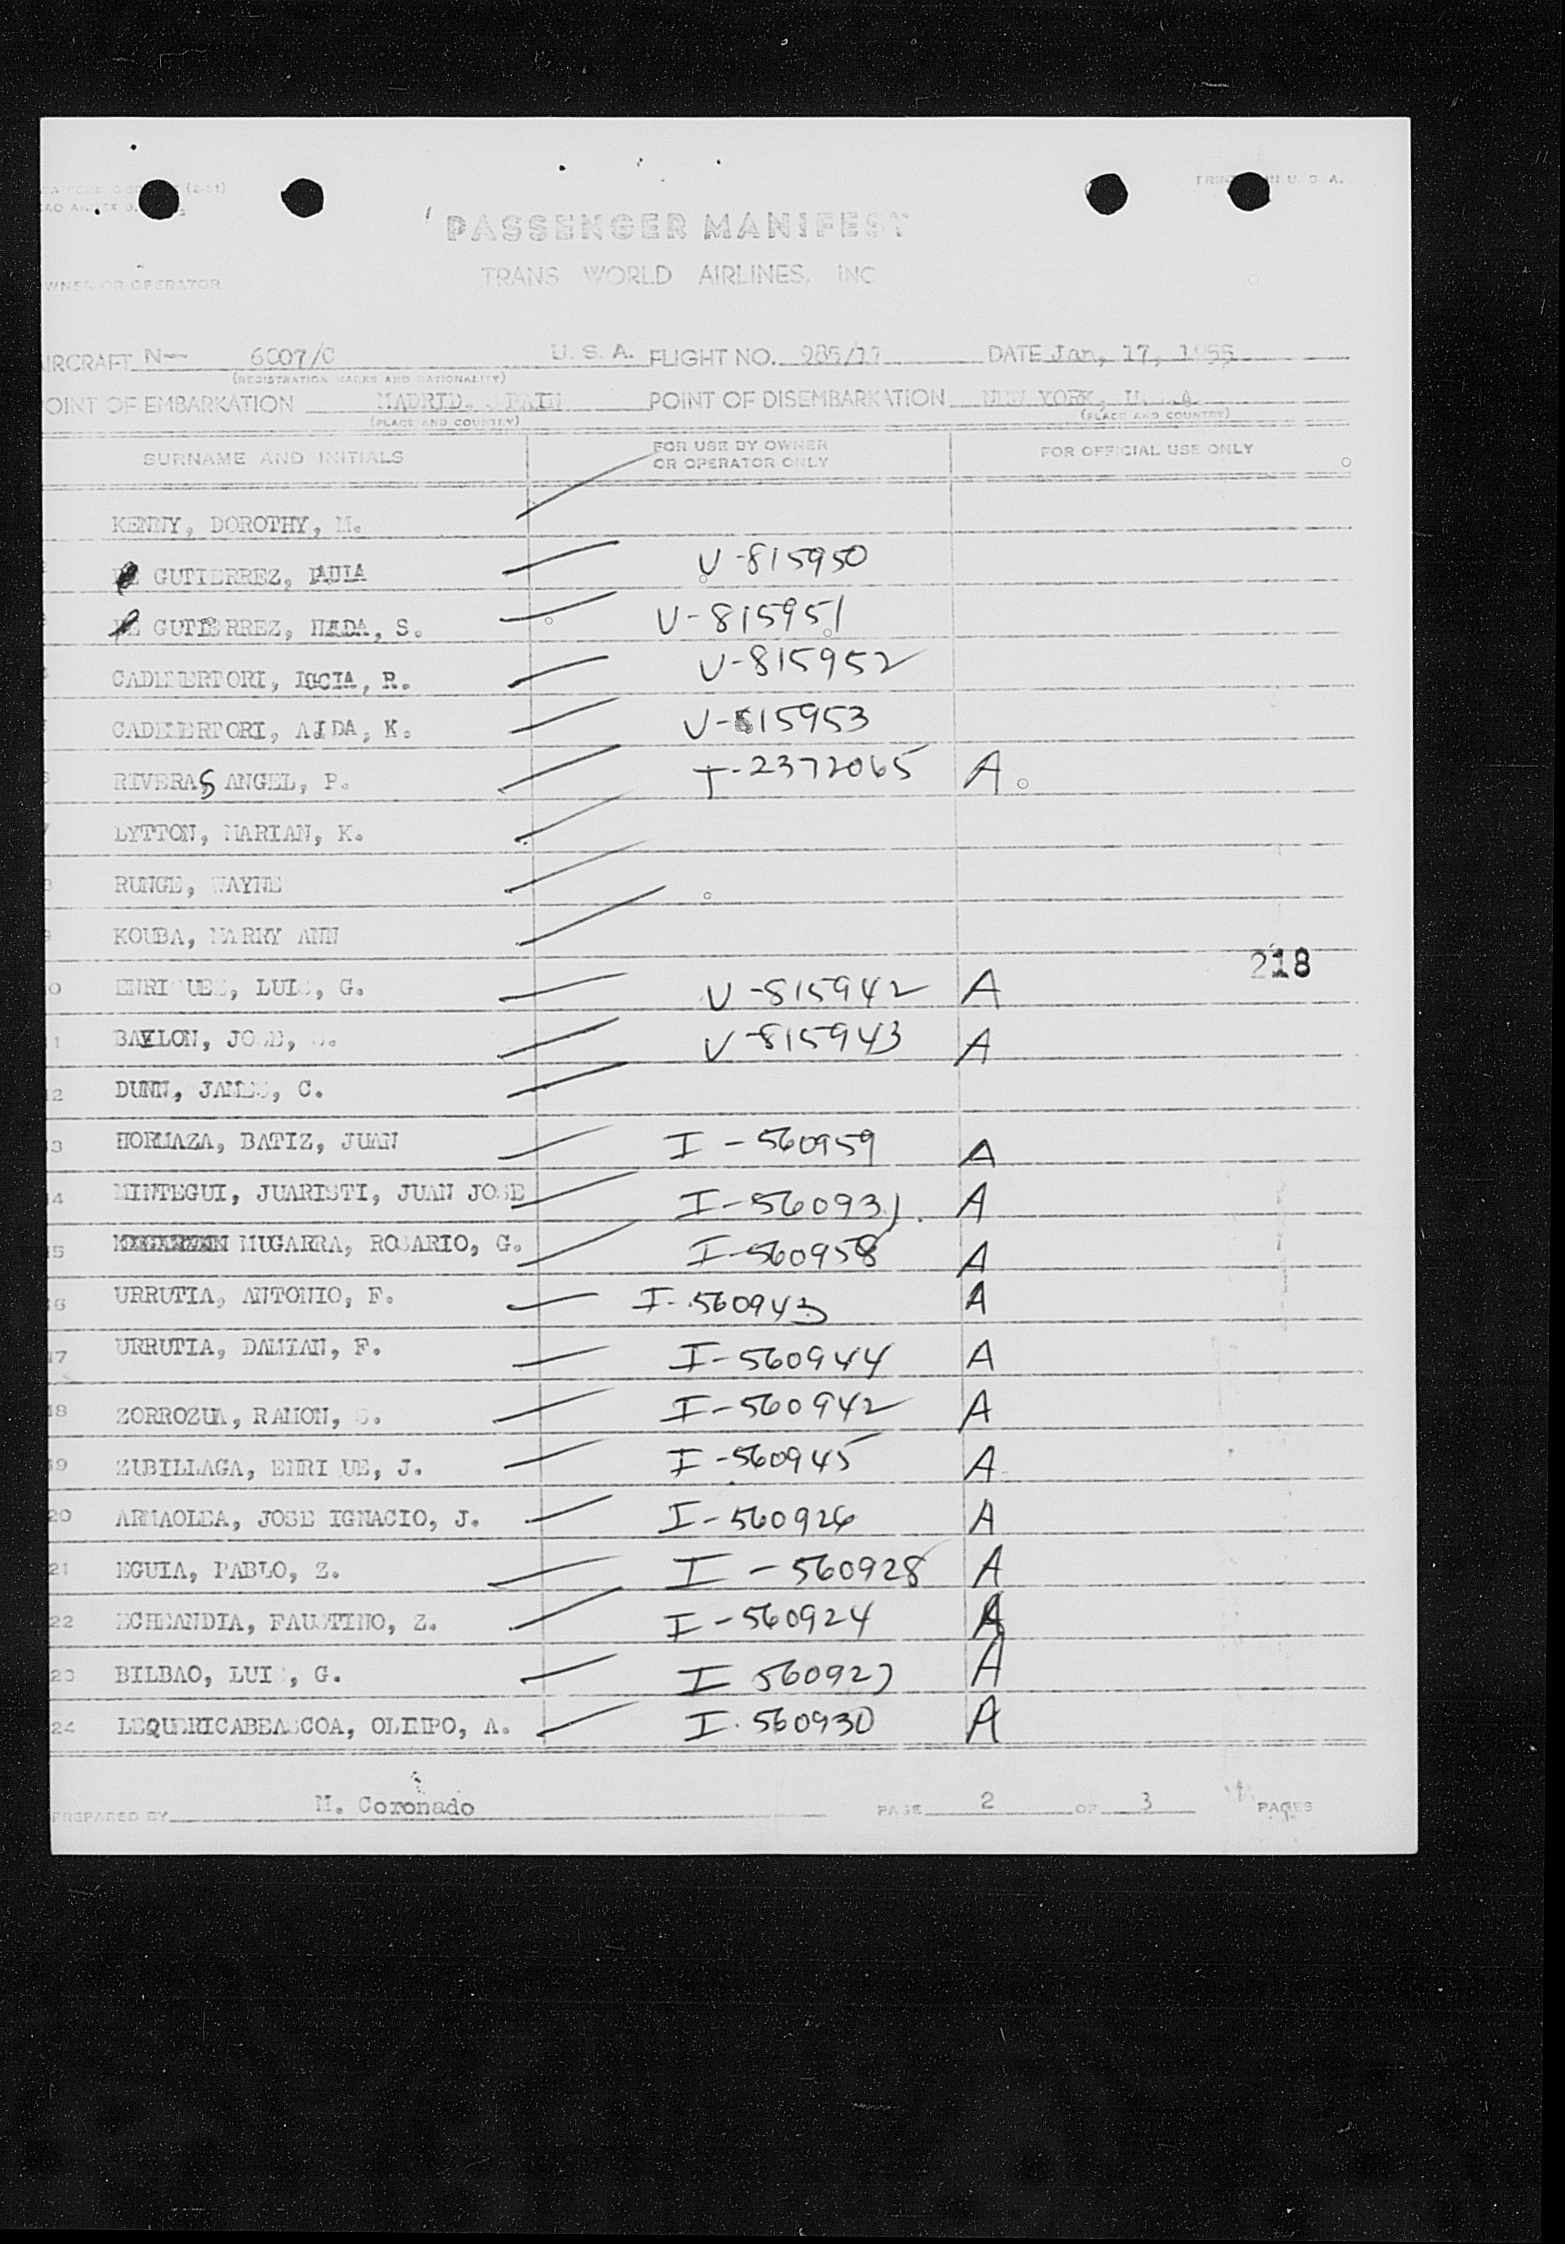 PASSENGER MANIFEST
TRANS WORLD AIRLINES, INC
OWNER OR OPERATOR
AIRCRAFT N-- 6007/C U. S. A. FLIGHT NO. 985/17 DATE Jan, 17, 1955
(REGISTRATION MARKS AND NATIONALITY)
POINT OF EMBARKATION MADRID. SPAIN POINT OF DISEMBARKATION NEW YORK, U. S. A.
(PLACE AND COUNTRY) (PLACE AND COUNTRY)
SURNAME AND INITIALS FOR USE BY OWNER OR OPERATOR ONLY FOR OFFICIAL USE ONLY
KENNY, DOROTHY, M.
GUTIERREZ, PAULA V-815950
GUTIERREZ, HADA, S. V-815951
CADEMERTORI, LUCIA, R. V-815952
CADEMERTORI, AIDA, K. V-815953
6 RIVERAS ANGEL, P. T-2372065 A
7 LYTTON, MARIAN, K.
8 RUNGE, WAYNE
9 KOUBA, MARRY ANN
218
10 ENRIQUES, LUIS, G. V-815942 A
11 BAYLON, JOSE, V-815943 A
12 DUNN, JAMES, C.
13 HORMAZA, BATIZ, JUAN I-560959 A
14 MINTEGUI, JUARISTI, JUAN JOSE I-560931. A
15 MUGARRA, ROSARIO, G. I-560958 A
16 URRUTIA, ANTONIO, F. I-560943 A
17 URRUTIA, DAMIAN, F. I-560944 A
18 ZORROZUA, RAMON, S. I-560942 A
19 ZUBILLAGA, ENRIQUE, J. I-560945 A
20 ARMAOLEA, JOSE IGNACIO, J. I-560926 A
21 EGUIA, PABLO, Z. I-560928 A
22 ECHEANDIA, FAUSTINO, Z. I-560924 A
23 BILBAO, LUIS, G. I 560927 A
24 LEQUERICABEASCOA, OLIMPO, A. I. 560930 A
PREPARED BY M. Coronado PAGE 2 OF 3 PAGES